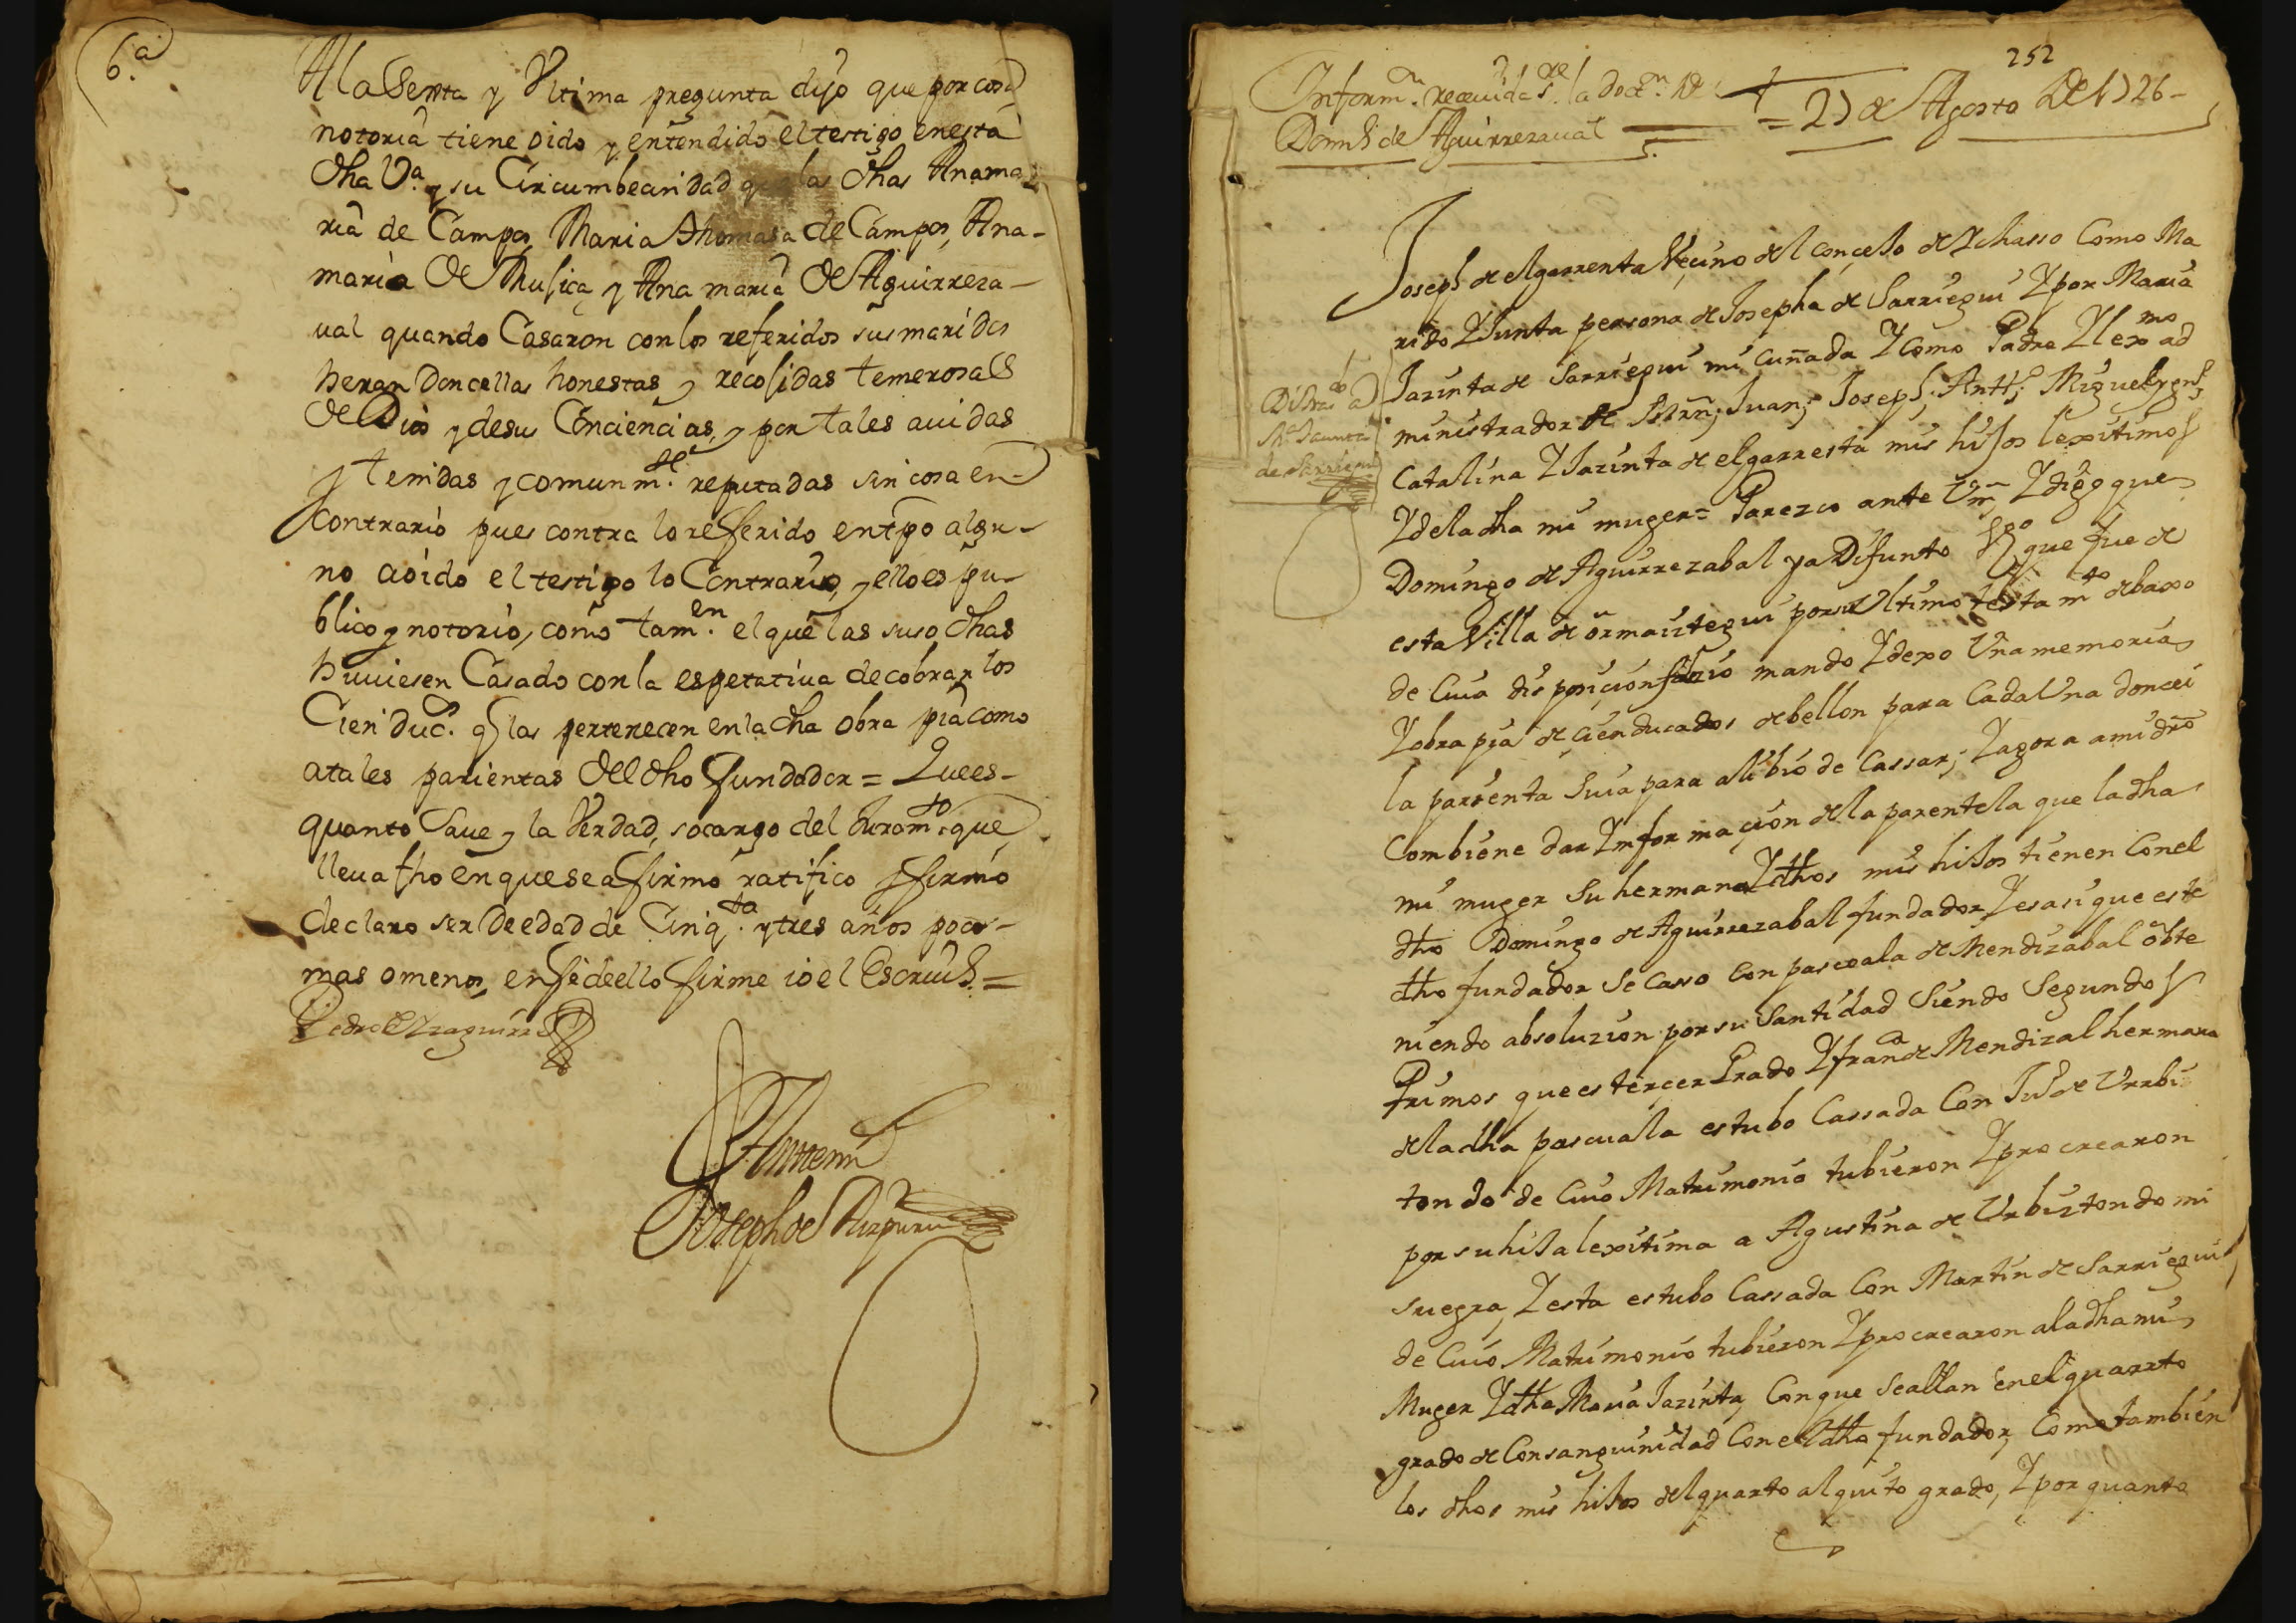 6.ª
A la Sexta y Vltima pregunta dijo que por cosa
notoria tiene oido y entendido el testigo en esta
dha V.ª y su Circumbecindad que las dhas Ana ma-
ria de Campos, Maria Thomasa de Campos, Ana-
maria de Musica y Ana maria de Aguirreza-
ual quando Casaron con los referidos sus maridos
heran Doncellas honestas y recojidas temerosas
de Dios y de sus Conciencias, y por tales auidas
y tenidas y comunm.te reputadas sin cosa en-
contrario pues contra lo referido en tpo algu-
no a oido el testigo lo Contrario, y ello es pu-
blico y notorio, como tam.en el que las suso dhas
huuiesen Casado con la espetatiua de cobrar los
Cien duc.s q las pertenecen en la dha obra pia como
a tales parientas del dho fundador = Que es-
quanto Saue y la Verdad, so cargo del Juram.to que
lleua fho en que se afirmó ratifico y firmó
declaro ser De edad de Cinq.ta y tres años poco-
mas o menos, en fe de ello firme io el Escriu.o =
Pedro de Yzaguirre
Antemi
Joseph de Aizpuru
252
Inform.n receuida de la Doct.n
Domº de Aguirrezaual
= 27 de Agosto de 1726 -
Joseph de elgarresta Vecino del concejo de Ychasso Como Ma
rido Y Junta persona de Josepha de Sarriegui Y por Maria
Jazinta de Sarriegui mi cuñada Y como Padre Y lexmo ad
ministrador de Mrn; Juan; Joseph; Antt.; Miguel,
Catalina Y Jazinta de elgarresta mis hijos lexitimos
Y de la dha mi muger = Parezco ante Vm, Y digo que
Domingo de Aguirrezabal ya Difunto que fue de
esta Villa de ormaiztegui por su Vltimo testam.to debaxo
de Cuia disposicion mando Y dexo Vna memoria
Y obra pia de cien ducados de bellon para Cada Vna doncel
la parienta Suia para alibio de Cassar; Y agora a mi dro
Combiene dar Ynformacion de la parentela que la dha
mi muger Su hermana Y dhos mis hijos tienen Con el
dho Domingo de Aguirrezabal fundador Y es asi que este
dho fundador Se Casso Con pascoala de Mendizabal obte
niendo absoluzion por su Santidad Siendo Segundos
Primos que es tercer Grado Y fran.ca de Mendizal hermana
de la dha pascuala estubo Cassada Con Ju.o de Vrrbiz
tondo de Cuio Matrimonio tubieron Y procrearon
por su hija lexitima a Agustina de Vrbiztondo mi
suegra, Y esta estubo Cassada Con Martin de Sarriegui
de Cuio Matrimonio tubieron Y procrearon a la dha mi
Muger Y dha Maria Jazinta, Con que Se allan en el quarrto
grado de Consanguinidad Con el dho fundador, Como tambien
los dhos mis hijos del quarto al quito grado, Y por quanto
de Sarriegui